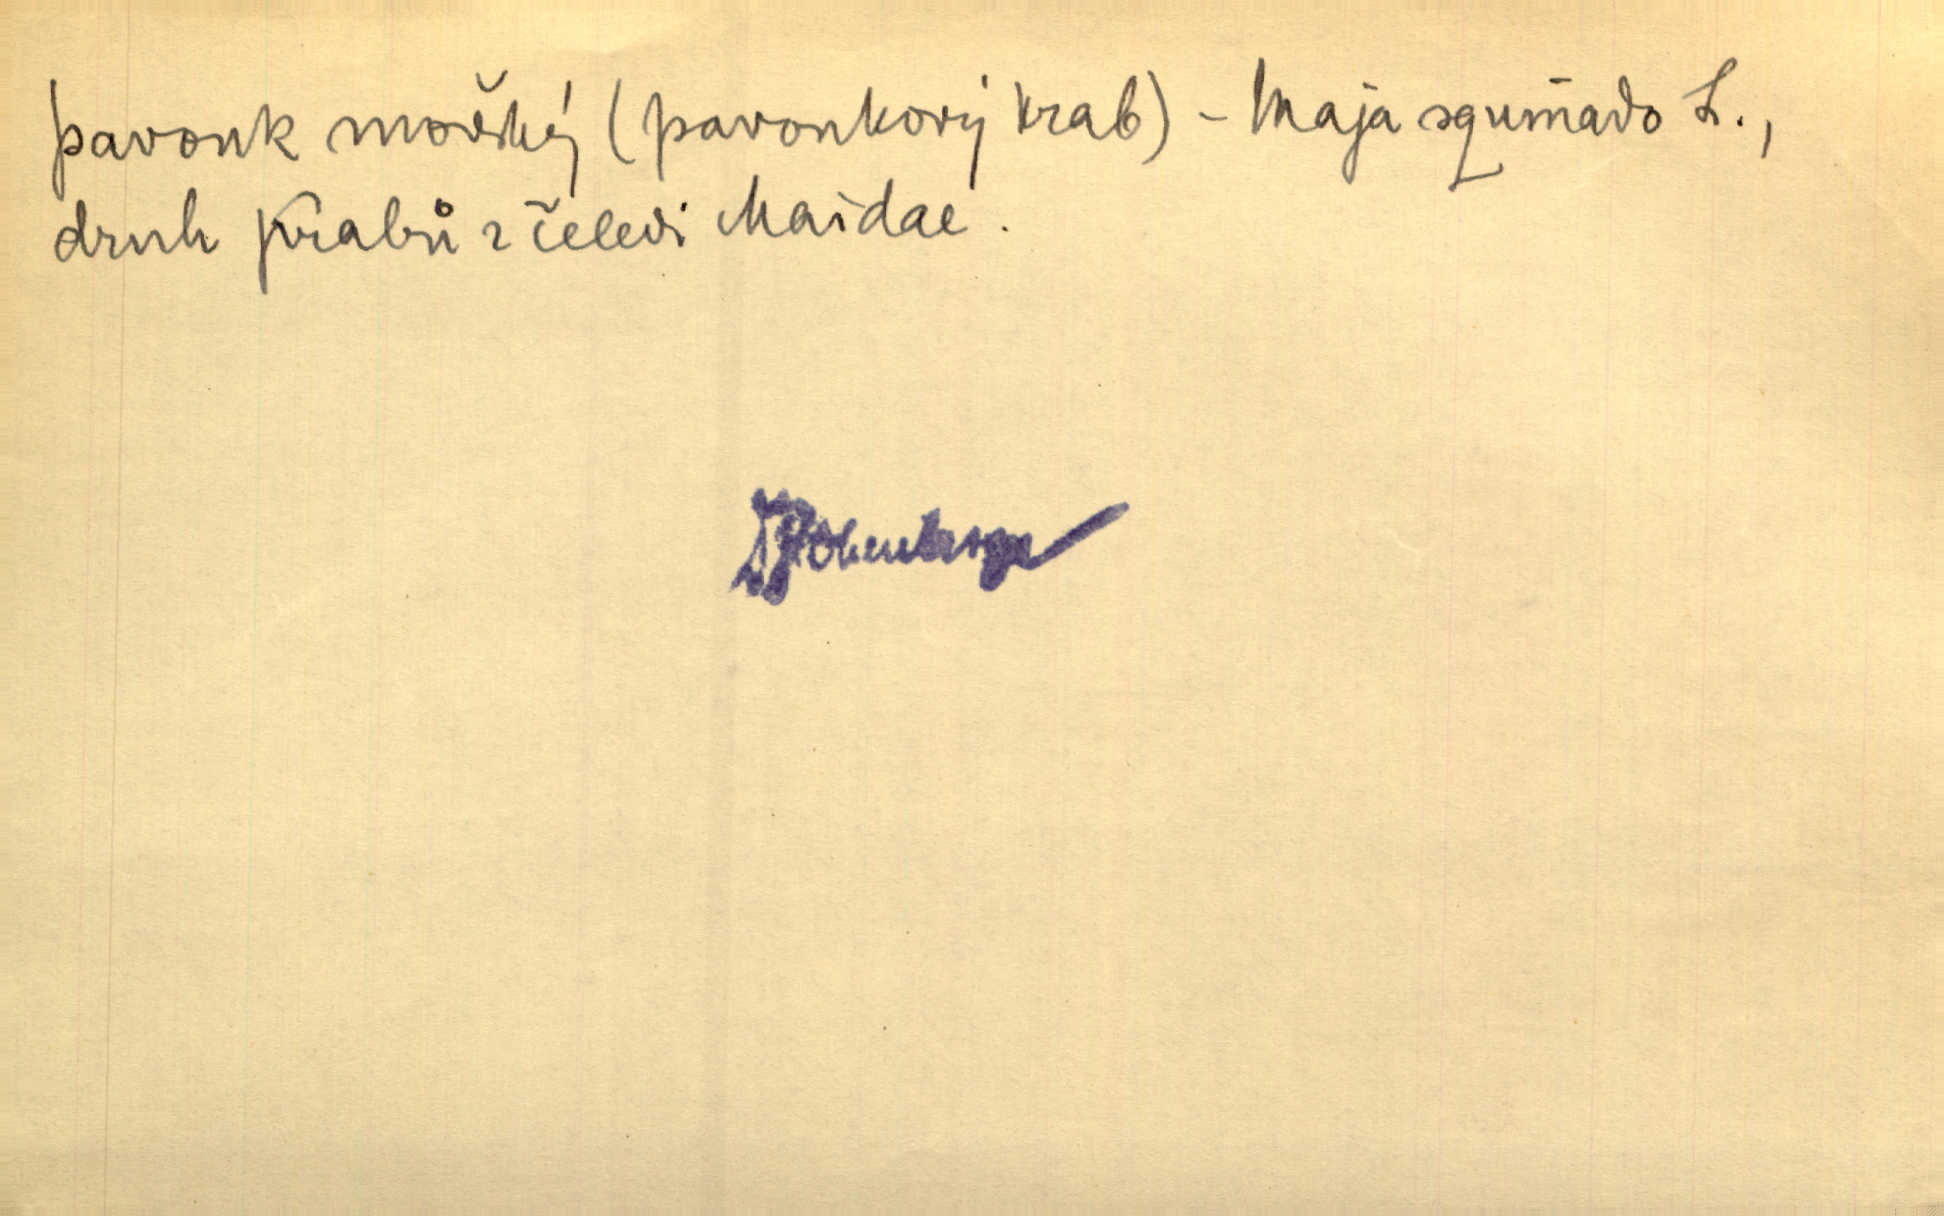 pavouk mořský (pavoukový krab) - Maja squinado L.,
druh krabů z čeledi Maidae.
Obenberger